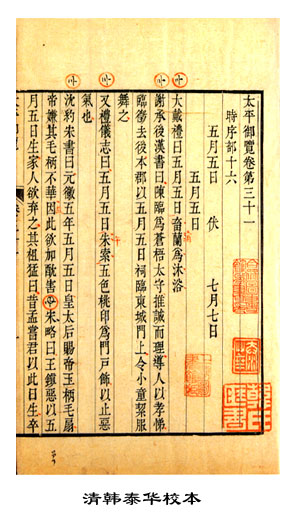 太平御覽卷第三十一
時序部十六
五月五日　伏　七月七日
五月五日
大戴禮曰五月五日畜蘭爲沐浴
謝承後漢書曰陳臨爲蒼梧太守推誠而理導人以孝悌
臨徵去後本郡以五月五日祠臨東城門上令小童絜服
舞之
又禮儀志曰五月五日朱索五色桃印爲門戶飾以止惡
氣也
沈約宋書曰元徽五年五月五日皇太后賜帝玉柄毛扇
帝嫌其毛柄不華因此欲加酖害宋略曰王鎮惡以五
月五日生家人欲弃之其祖猛曰昔孟嘗君以此日生卒
清韩泰华校本